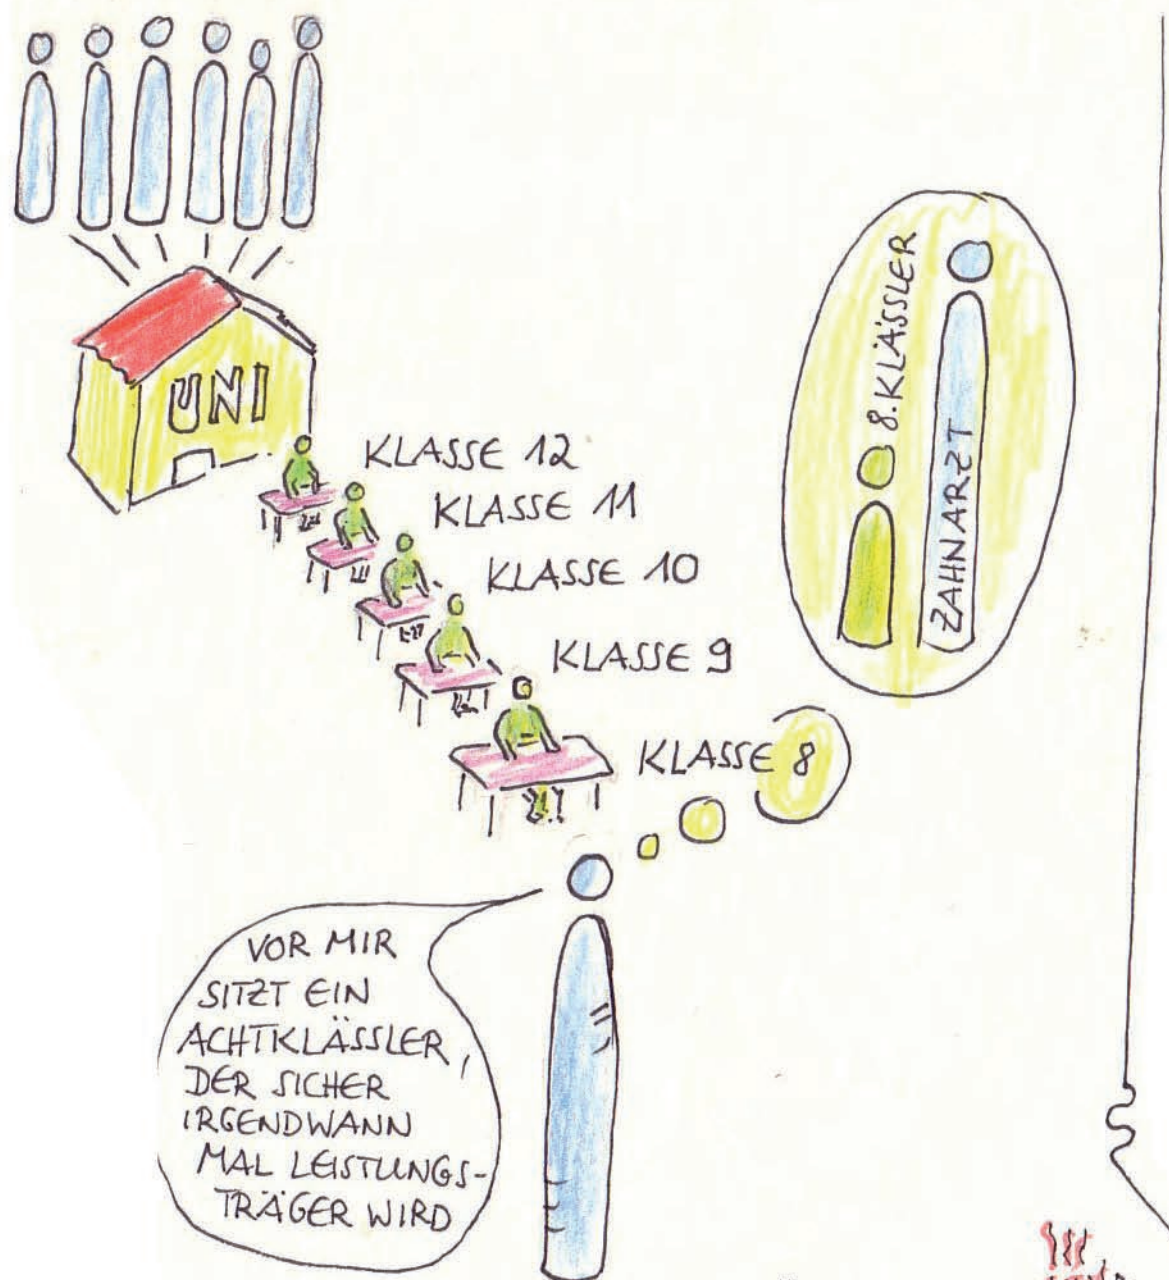 UNI
KLASSE 12
KLASSE 11
KLASSE 10
KLASSE 9
KLASSE 8
8. KLÄSSLER
ZAHNARZT
VOR MIR
SITZT EIN
ACHTKLÄSSLER,
DER SICHER
IRGENDWANN
MAL LEISTUNGS-
TRÄGER WIRD